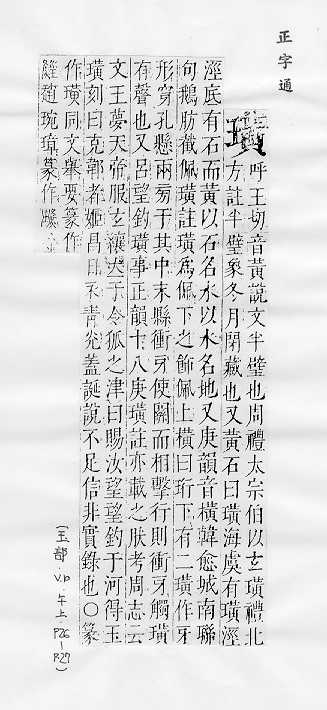 正字通
璜 呼王切音黃說文半璧也周禮太宗伯以玄璜禮北
方註半璧象冬月閉藏也又黃石曰璜海虞有璜涇
涇底有石而黃以石名水以水名地又庚韻音橫韓愈城南聯
句鵝肪截佩璜註璜爲佩下之飾佩上橫曰珩下有二璜作牙
形穿孔懸兩旁于其中末縣衝牙使關而相擊行則衝牙觸璜
有聲也又呂望釣璜事正韻十八庚璜註亦載之肰考周志云
文王夢天帝服玄禳立于令狐之津曰賜汝望望釣于河得玉
璜刻曰克者姬昌日不靑蓋誕說不足信非實錄也○篆
作璜同文舉要篆作
趙琬璜篆作
(玉部.V.10.午上 P26-P27)